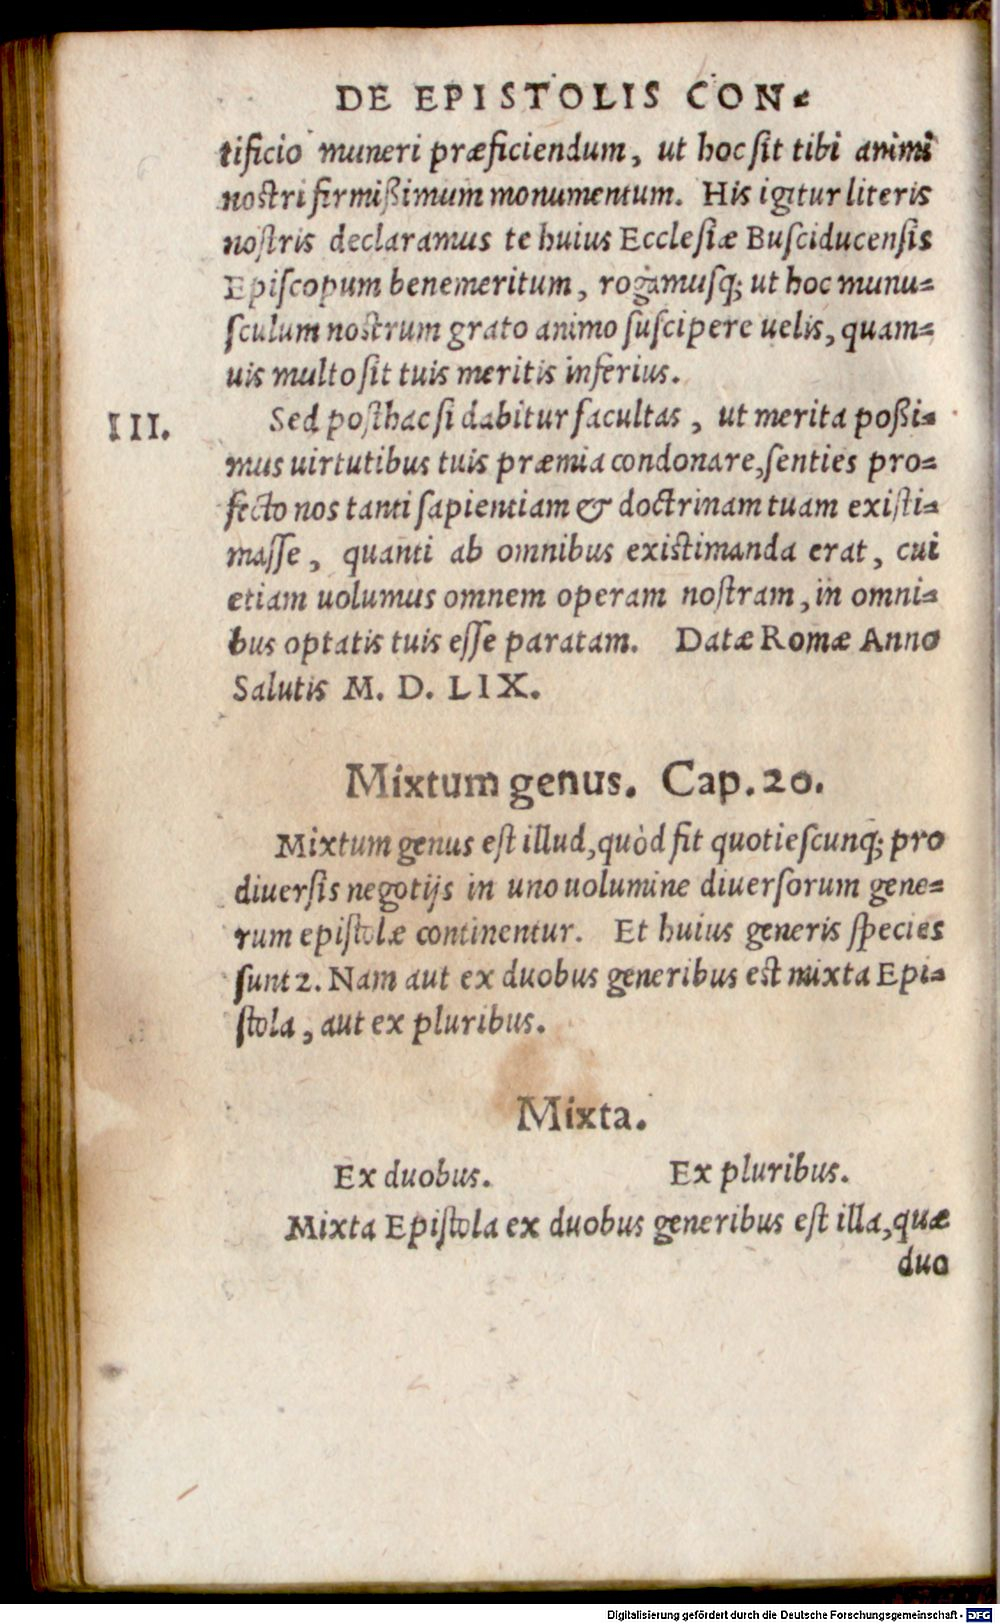 DE EPISTOLIS CON-
tificio muneri præficiendum, ut hoc sit tibi animi
nostri firmißimum monumentum. His igitur literis
nostris declaramus te huius Ecclesiæ Busciducensis
Episcopum benemeritum, rogamusq; ut hoc munu-
sculum nostrum grato animo suscipere uelis, quam-
uis multo sit tuis meritis inferius.
III. Sed posthac si dabitur facultas, ut merita poßi-
mus uirtutibus tuis præmia condonare, senties pro-
fecto nos tanti sapientiam & doctrinam tuam existi-
masse, quanti ab omnibus existimanda erat, cui
etiam uolumus omnem operam nostram, in omni-
bus optatis tuis esse paratam. Datæ Romæ Anno
Salutis M. D. LIX.
Mixtum genus. Cap. 20.
Mixtum genus est illud, quòd fit quotiescunq; pro
diuersis negotijs in uno uolumine diuersorum gene-
rum epistolæ continentur. Et huius generis species
sunt 2. Nam aut ex duobus generibus est mixta Epi-
stola, aut ex pluribus.
Mixta.
Ex duobus. Ex pluribus.
Mixta Epistola ex duobus generibus est illa, quæ
duo
Digitalisierung gefördert durch die Deutsche Forschungsgemeinschaft - DFG